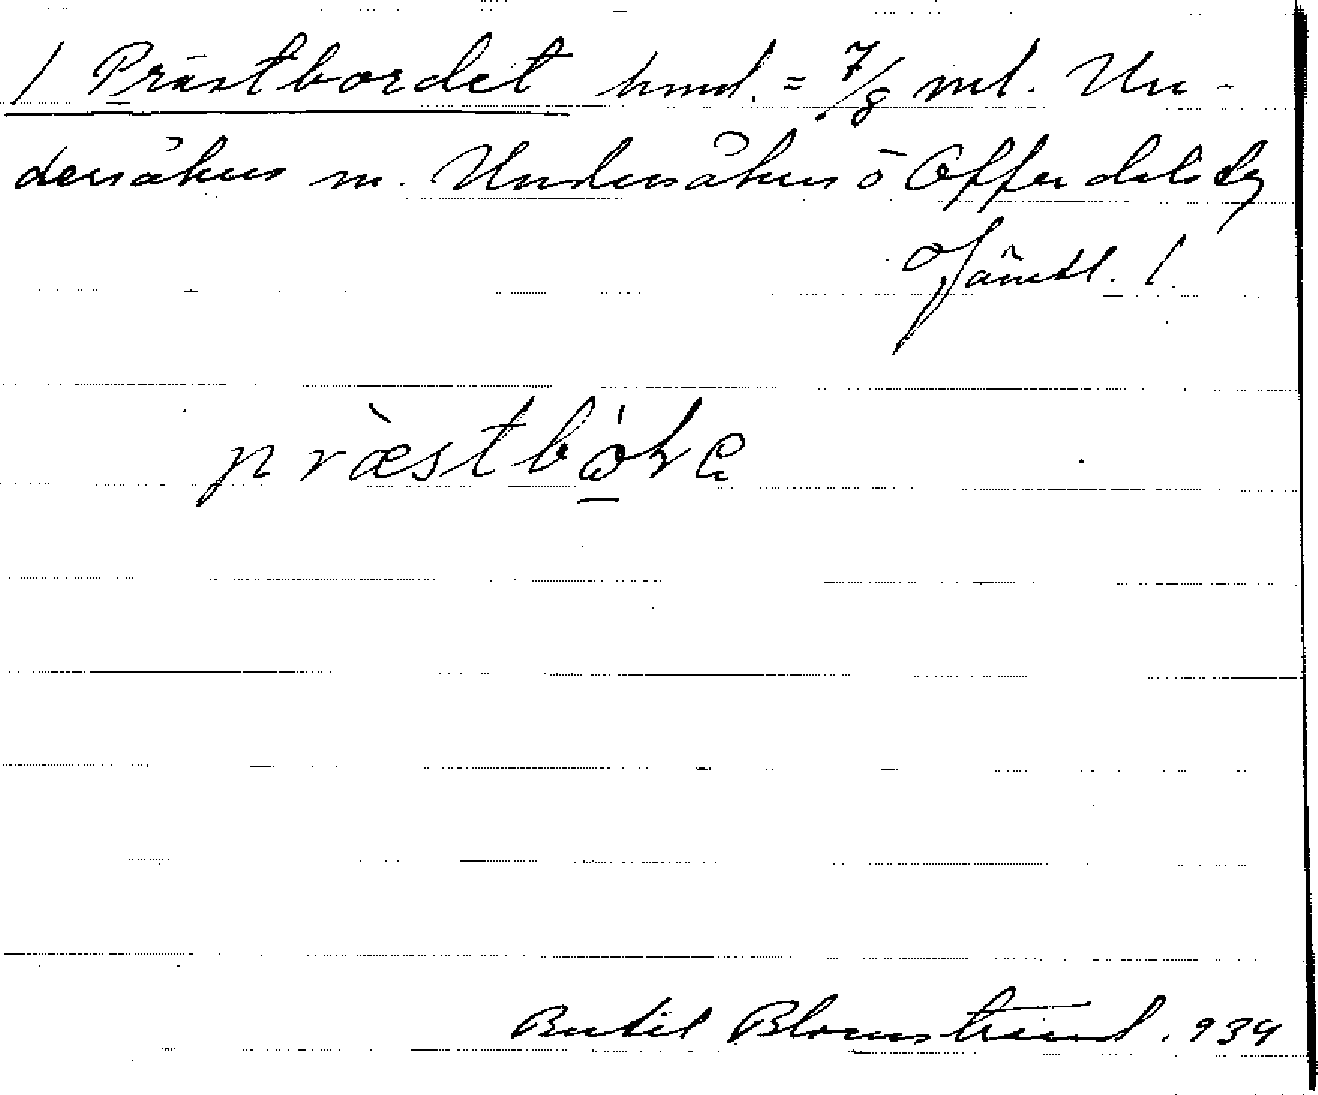 / Prästbordet hmd. = 7/8 mtl. Un-
dersåkers sn. Undersåkers o Offerdals tg
Jämtl. /
præstbòʟe
Bertil Blomstrand. 939